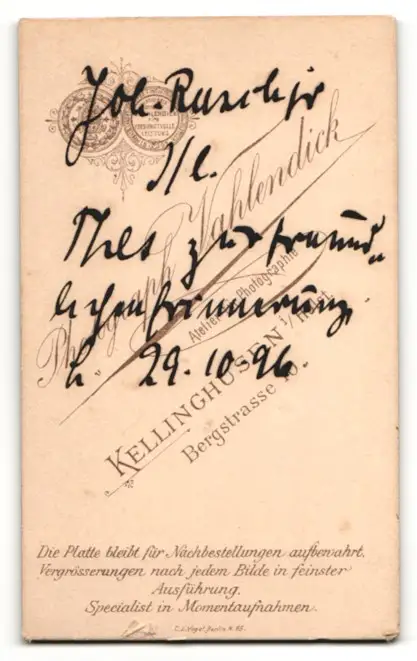 Joh. Rusch jr
s/l.
Thls zur freund-
lichen Erinnerung.
29.10.96.
Photograph Vahlendick
Atelier Photographie
KELLINGHUSEN i/Holst.
Bergstrasse 10.
Die Platte bleibt für Nachbestellungen aufbewahrt.
Vergrösserungen nach jedem Bilde in feinster
Ausführung.
Specialist in Momentaufnahmen.